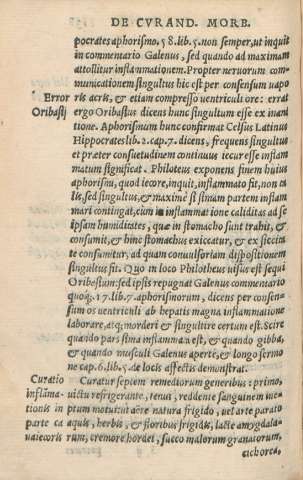 DE CVRAND. MORB.
pocrates aphorismo. 58. lib. 5. non semper, ut inquit
in commentario Galenus, sed quando ad maximam
attollitur inflammationem. Propter neruorum com-
municationem singultus hic est per consensum uapo
Error ris acris, & etiam compresso uentriculi ore: errat
Oribasij ergo Oribasius dicens hunc singultum esse ex inani
tione. Aphorismum hunc confirmat Celsus Latinus
Hippocrates lib. 2. cap. 7. dicens, frequens singultus
et præter consuetudinem continuus iecur esse inflam
matum significat. Philoteus exponens finem huius
aphorismi, quod iecore, inquit, inflammato fit, non ex
tis, sed singultus, & maximè si simum partem inflam
mari contingat, cum in inflammatione caliditas ad se
ipsam humiditates, quæ in stomacho sunt trahit, &
consumit, & hinc stomachus exiccatur, & ex siccita
te consumitur, ad quam conuulsoriam dispositionem
singultus fit. Quo in loco Philotheus uisus est sequi
Oribasium: sed ipsis repugnat Galenus commentario
quoq;. 17. lib. 7. aphorismorum, dicens per consen-
sum os uentriculi ab hepatis magna inflammatione
laborare, atq; morderi & singultire certum est. Scire
quando pars sima inflammata est, & quando gibba,
& quando musculi Galenus apertè, & longo sermo
ne cap. 6. lib. 5. de locis affectis demonstrat.
Curatio Curatur septem remediorum generibus: primo,
inflama- uictu refrigerante, tenui, reddente sanguinem ine
tionis in ptum motui: ut aëre natura frigido, uel arte parato
parte ca aquis, herbis, & floribus frigidis, lacte amygdala-
rum, cremore hordei, succo malorum granatorum,
cichorea,